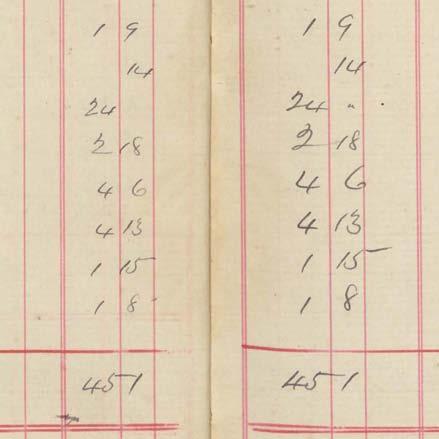 1 9
14
24
2 18
4 6
4 13
1 15
1 8
45 1
1 9
14
24 "
2 18
4 6
4 13
1 15
1 8
45 1